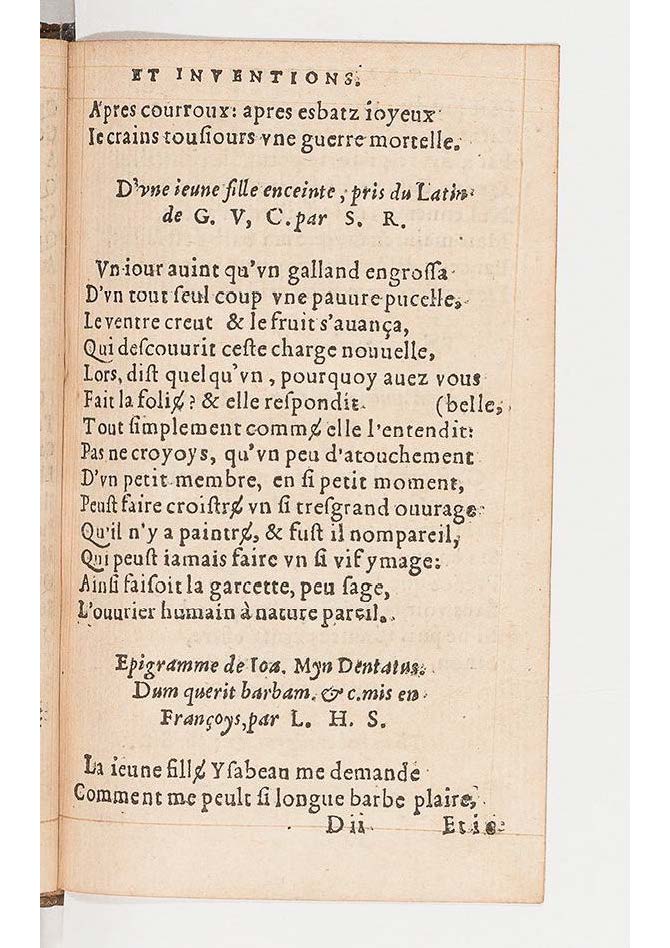 ET INVENTIONS.
Apres courroux: apres esbatz ioyeux
Ie crains tousiours vne guerre mortelle.
D'vne ieune fille enceinte, pris du Latin
de G. V, C. par S. R.
Vn iour auint qu'vn galland engroſſa
D'vn tout ſeul coup vne pauure pucelle,
Le ventre creut & le fruit s'auança,
Qui deſcouurit ceſte charge nouuelle,
Lors, diſt quelqu'vn, pourquoy auez vous
Fait la foliɇ? & elle reſpondit. (belle,
Tout ſimplement commɇ elle l'entendit:
Pas ne croyoys, qu'vn peu d'atouchement
D'vn petit membre, en ſi petit moment,
Peuſt faire croiſtrɇ vn ſi treſgrand ouurage
Qu'il n'y a paintrɇ, & fuſt il nompareil,
Qui peuſt iamais faire vn ſi vif ymage:
Ainſi faiſoit la garcette, peu ſage,
L'ouurier humain à nature pareil.
Epigramme de Ioa. Myn Dentatus.
Dum querit barbam. & c. mis en
Françoys, par L. H. S.
La ieune fillɇ Yſabeau me demande
Comment me peult ſi longue barbe plaire,
D ii Et ie